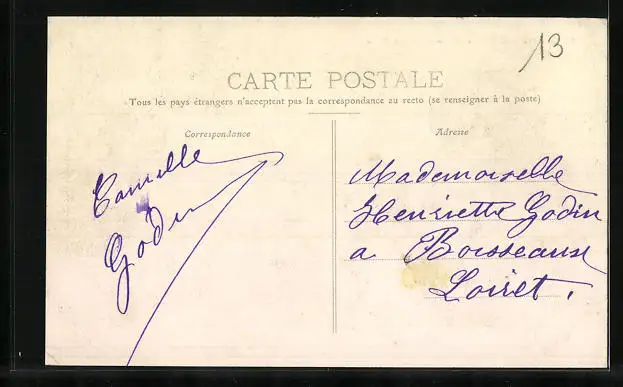 13
CARTE POSTALE
Tous les pays étrangers n'acceptent pas la correspondance au recto (se renseigner à la poste)
Correspondance
Camille
Godin
Adresse
Mademoiselle
Henriette Godin
a Boisseaux
Loiret.